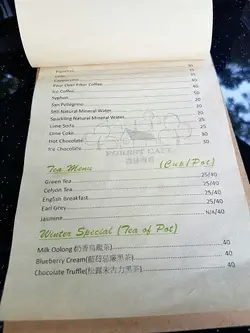 Espresso 35
Latte
Cappuccino 35
Pour Over Filter Coffee 40
Ice Coffee 50
Syphon 50
San Pellegrino 20
Still Natural Mineral Water 20
Sparkling Natural Mineral Water 20
Lime Soda 25
Lime Coke 25
Hot Chocolate 30
Ice Chocolate 30
FOREST CAFE
Tea Menu (Cup/Pot)
Green Tea 25/40
Celyon Tea 25/40
English Breakfast 25/40
Earl Grey 25/40
Jasmine N/A/40
Winter Special (Tea of Pot)
Milk Oolong (奶香烏龍茶) 40
Blueberry Cream(藍莓忌廉黑茶) 40
Chocolate Truffle(松露朱古力黑茶) 40